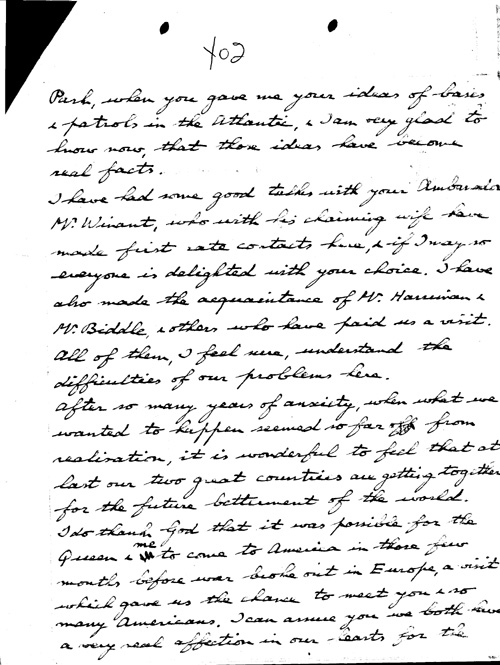 402
Park, when you gave me your ideas of bases
& patrols in the Atlantic, & I am very glad to
know now, that those ideas have become
real facts.
I have had some good talks with your Ambassador
Mr. Winant, who with his charming wife have
made first rate contacts here, & if I may so
everyone is delighted with your choice. I have
also made the acquaintance of Mr. Harriman &
Mr. Biddle, & others who have paid us a visit.
All of them, I feel sure, understand the
difficulties of our problems here.
After so many years of anxiety, when what we
wanted to happen seemed so far off from
realisation, it is wonderful to feel that at
last our two great countries are getting together
for the future betterment of the world.
I do thank God that it was possible for the
Queen & me to come to America in those few
months before war broke out in Europe, a visit
which gave us the chance to meet you & so
many Americans. I can assure you we both have
a very real affection in our hearts for the